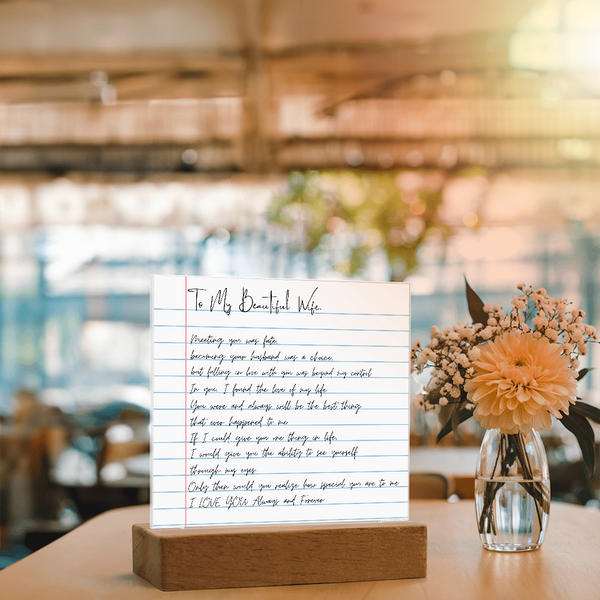 To My Beautiful Wife,
Meeting you was fate,
becoming your husband was a choice,
but falling in love with you was beyond my control
In you, I found the love of my life
You were and always will be the best thing
that ever happened to me
If I could give you one thing in life,
I would give you the ability to see yourself
through my eyes
Only then would you realize how special you are to me
I LOVE YOU Always and Forever